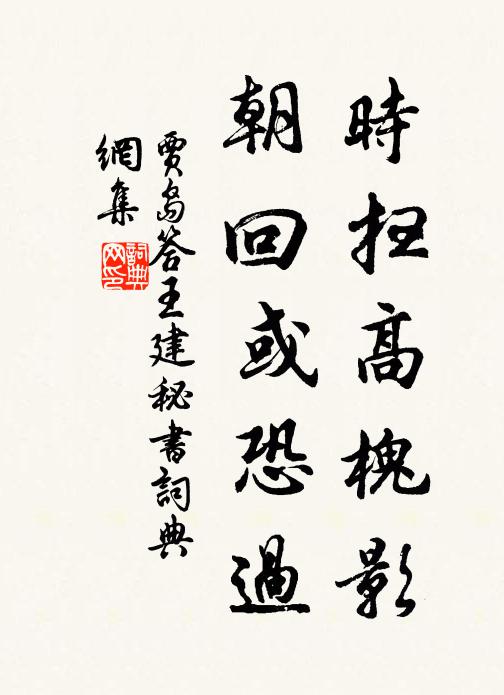 時掃高槐影
朝回或恐過
賈島答王建秘書詞典
網集
詞典
网印